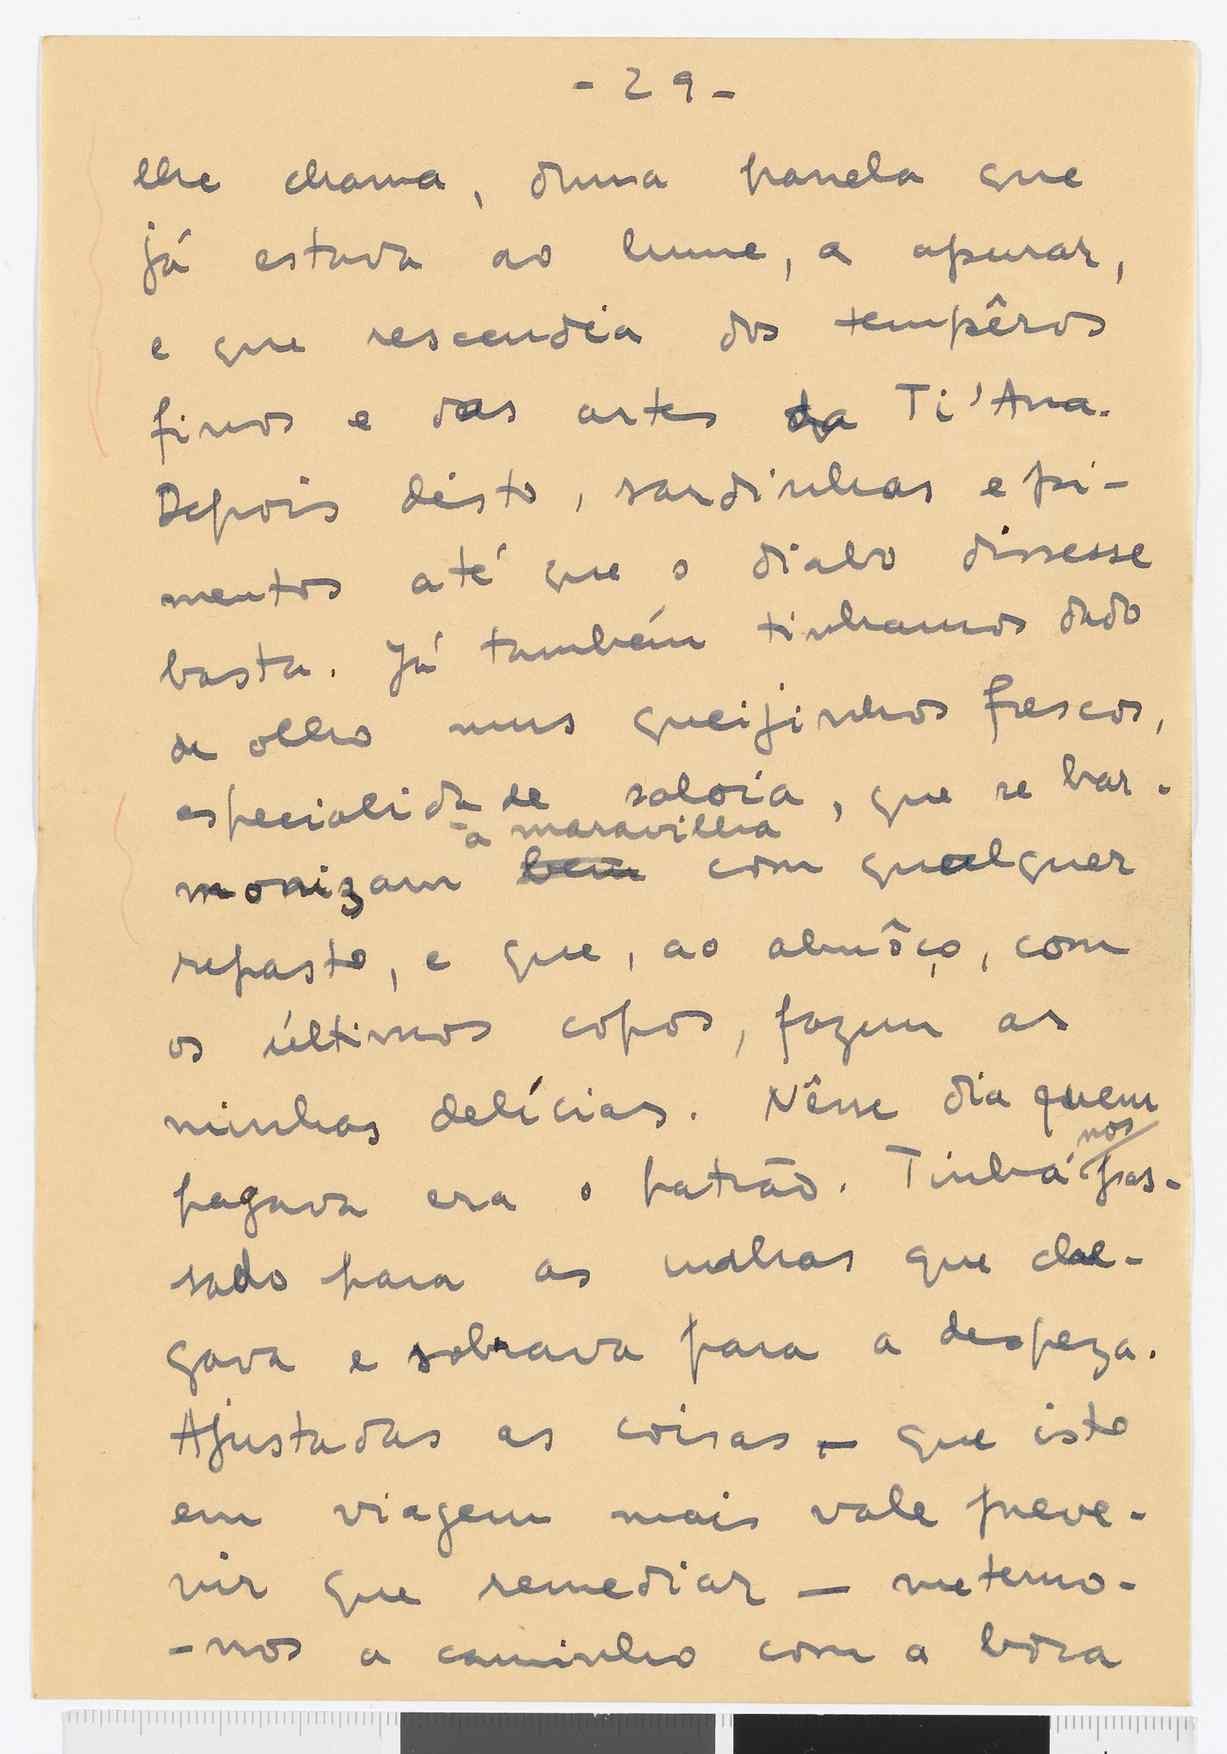 - 29 -
lhe chama, duma panela que
já estava ao lume, a apurar,
e que rescendia dos tempêros
finos e das artes da Ti'Ana.
Depois disto, sardinhas e pi-
mentos até que o diabo dissesse
basta. Já também tinhamos dado
de olho nuns queijinhos frescos,
especialidade saloia, que se har-
à maravilha
monizam bem com qualquer
repasto, e que, ao almôço, com
os últimos copos, fazem as
minhas delícias. Nêsse dia quem
nos
pagava era o patrão. Tinha pas-
sado para as unhas que che-
gava e sobrava para a despeza.
Ajustadas as coisas — que isto
em viagem mais vale preve-
nir que remediar — metemo-
-nos a caminho com a boca